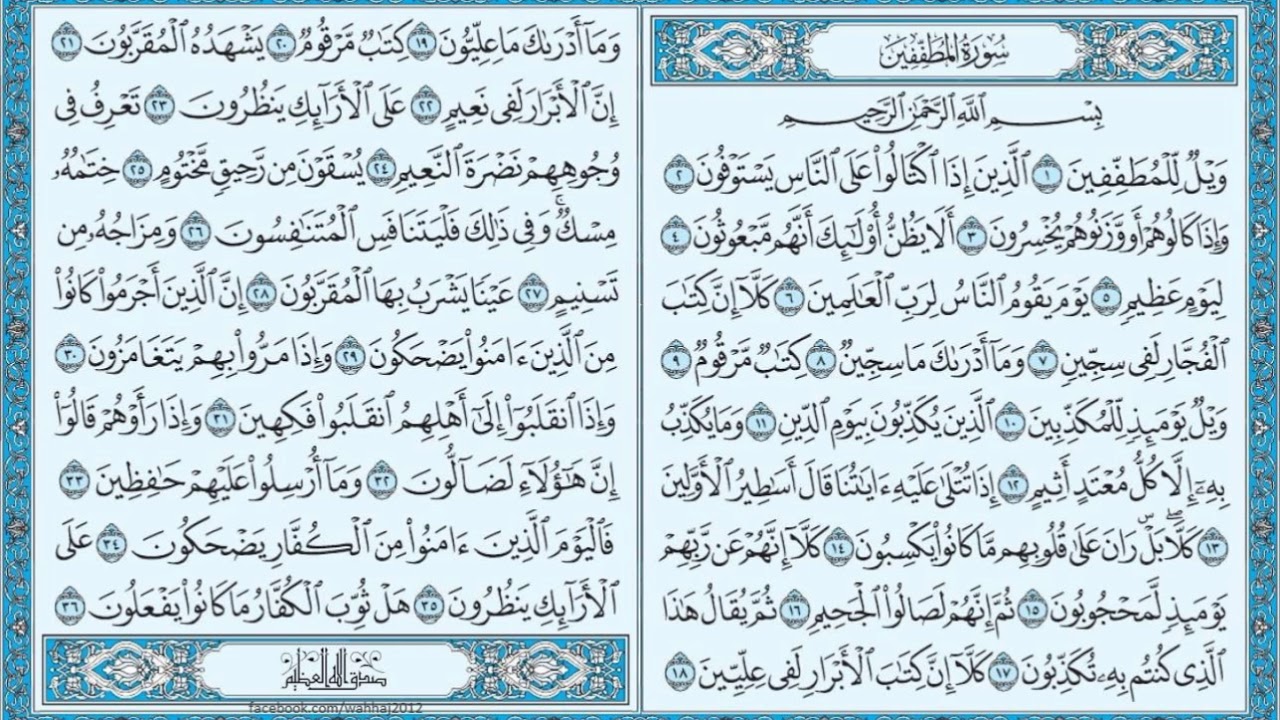 سُورَةُ المُطَفِّفِينَ
بِسْمِ ٱللَّهِ ٱلرَّحْمَٰنِ ٱلرَّحِيمِ
وَيْلٌ لِّلْمُطَفِّفِينَ ١ ٱلَّذِينَ إِذَا ٱكْتَالُوا۟ عَلَى ٱلنَّاسِ يَسْتَوْفُونَ ٢
وَإِذَا كَالُوهُمْ أَو وَّزَنُوهُمْ يُخْسِرُونَ ٣ أَلَا يَظُنُّ أُو۟لَٰٓئِكَ أَنَّهُم مَّبْعُوثُونَ ٤
لِيَوْمٍ عَظِيمٍ ٥ يَوْمَ يَقُومُ ٱلنَّاسُ لِرَبِّ ٱلْعَٰلَمِينَ ٦ كَلَّآ إِنَّ كِتَٰبَ
ٱلْفُجَّارِ لَفِى سِجِّينٍ ٧ وَمَآ أَدْرَىٰكَ مَا سِجِّينٌ ٨ كِتَٰبٌ مَّرْقُومٌ ٩
وَيْلٌ يَوْمَئِذٍ لِّلْمُكَذِّبِينَ ١٠ ٱلَّذِينَ يُكَذِّبُونَ بِيَوْمِ ٱلدِّينِ ١١ وَمَا يُكَذِّبُ
بِهِۦٓ إِلَّا كُلُّ مُعْتَدٍ أَثِيمٍ ١٢ إِذَا تُتْلَىٰ عَلَيْهِ ءَايَٰتُنَا قَالَ أَسَٰطِيرُ ٱلْأَوَّلِينَ
١٣ كَلَّا ۖ بَلْ ۜ رَانَ عَلَىٰ قُلُوبِهِم مَّا كَانُوا۟ يَكْسِبُونَ ١٤ كَلَّآ إِنَّهُمْ عَن رَّبِّهِمْ
يَوْمَئِذٍ لَّمَحْجُوبُونَ ١٥ ثُمَّ إِنَّهُمْ لَصَالُوا۟ ٱلْجَحِيمِ ١٦ ثُمَّ يُقَالُ هَٰذَا
ٱلَّذِى كُنتُم بِهِۦ تُكَذِّبُونَ ١٧ كَلَّآ إِنَّ كِتَٰبَ ٱلْأَبْرَارِ لَفِى عِلِّيِّينَ ١٨
وَمَآ أَدْرَىٰكَ مَا عِلِّيُّونَ ١٩ كِتَٰبٌ مَّرْقُومٌ ٢٠ يَشْهَدُهُ ٱلْمُقَرَّبُونَ ٢١
إِنَّ ٱلْأَبْرَارَ لَفِى نَعِيمٍ ٢٢ عَلَى ٱلْأَرَآئِكِ يَنظُرُونَ ٢٣ تَعْرِفُ فِى
وُجُوهِهِمْ نَضْرَةَ ٱلنَّعِيمِ ٢٤ يُسْقَوْنَ مِن رَّحِيقٍ مَّخْتُومٍ ٢٥ خِتَٰمُهُۥ
مِسْكٌ ۚ وَفِى ذَٰلِكَ فَلْيَتَنَافَسِ ٱلْمُتَنَٰفِسُونَ ٢٦ وَمِزَاجُهُۥ مِن
تَسْنِيمٍ ٢٧ عَيْنًا يَشْرَبُ بِهَا ٱلْمُقَرَّبُونَ ٢٨ إِنَّ ٱلَّذِينَ أَجْرَمُوا۟ كَانُوا۟
مِنَ ٱلَّذِينَ ءَامَنُوا۟ يَضْحَكُونَ ٢٩ وَإِذَا مَرُّوا۟ بِهِمْ يَتَغَامَزُونَ ٣٠
وَإِذَا ٱنقَلَبُوٓا۟ إِلَىٰٓ أَهْلِهِمُ ٱنقَلَبُوا۟ فَكِهِينَ ٣١ وَإِذَا رَأَوْهُمْ قَالُوٓا۟
إِنَّ هَٰٓؤُلَآءِ لَضَآلُّونَ ٣٢ وَمَآ أُرْسِلُوا۟ عَلَيْهِمْ حَٰفِظِينَ ٣٣
فَٱلْيَوْمَ ٱلَّذِينَ ءَامَنُوا۟ مِنَ ٱلْكُفَّارِ يَضْحَكُونَ ٣٤ عَلَى
ٱلْأَرَآئِكِ يَنظُرُونَ ٣٥ هَلْ ثُوِّبَ ٱلْكُفَّارُ مَا كَانُوا۟ يَفْعَلُونَ ٣٦
صدق الله العظيم
facebook.com/wahhaj2012